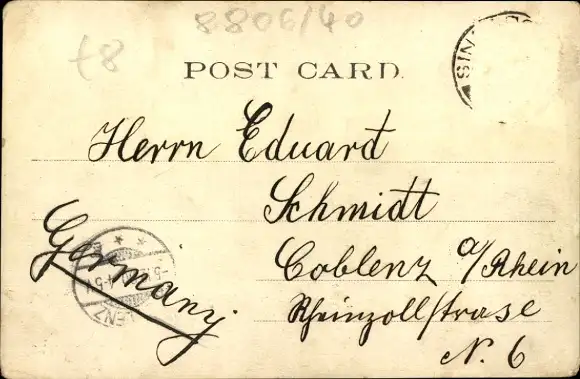 8806/40
f8
POST CARD.
SIN
Herrn Eduard
Schmidt
Coblenz a/Rhein
Rheinzollstrase
N. 6
Germany
LENZ